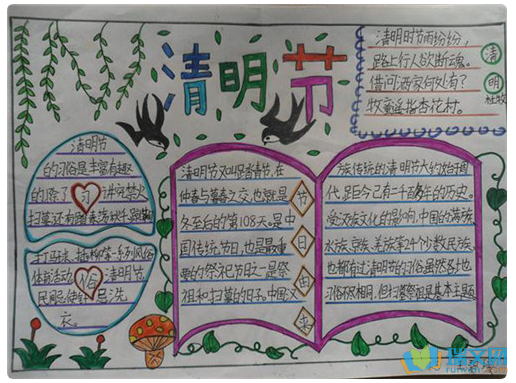 清明节
清明时节雨纷纷,
路上行人欲断魂。
借问酒家何处有?
牧童遥指杏花村。
清
明
杜牧
清明节
的习俗是丰富有趣
的,除了 讲究禁火
扫墓,还有踏青荡秋千
习
打马球、插柳等一系列风俗
体育活动 清明节
民间忌使针,忌洗
衣。
俗
清明节又叫踏青节,在
仲春与暮春之交,也就是
冬至后的第108天。是中
国传统节日,也是最重
要的祭祀节日之一是祭
祖和扫墓的日子。中国汉
节
日
由
来
族传统的清明节大约始于周
代,距今已有二千五百多年的历史。
受汉族文化的影响,中国的满族
水族、京族、羌族等24个少数民族,
也都有过清明节的习俗虽然各地
习俗不相同,但扫墓祭祖是基本主题
瑞文网